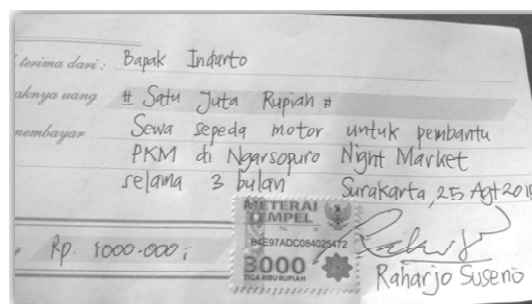 terima dari : Bapak Indarto
aknya uang # Satu Juta Rupiah #
nembayar Sewa sepeda motor untuk pembantu
PKM di Ngarsopuro Night Market
selama 3 bulan
Surakarta, 25 Agt 201
METERAI
TEMPEL
B4E97ADC084025472
3000
TIGA RIBU RUPIAH
Rp. 1000.000;
Raharjo Suseno